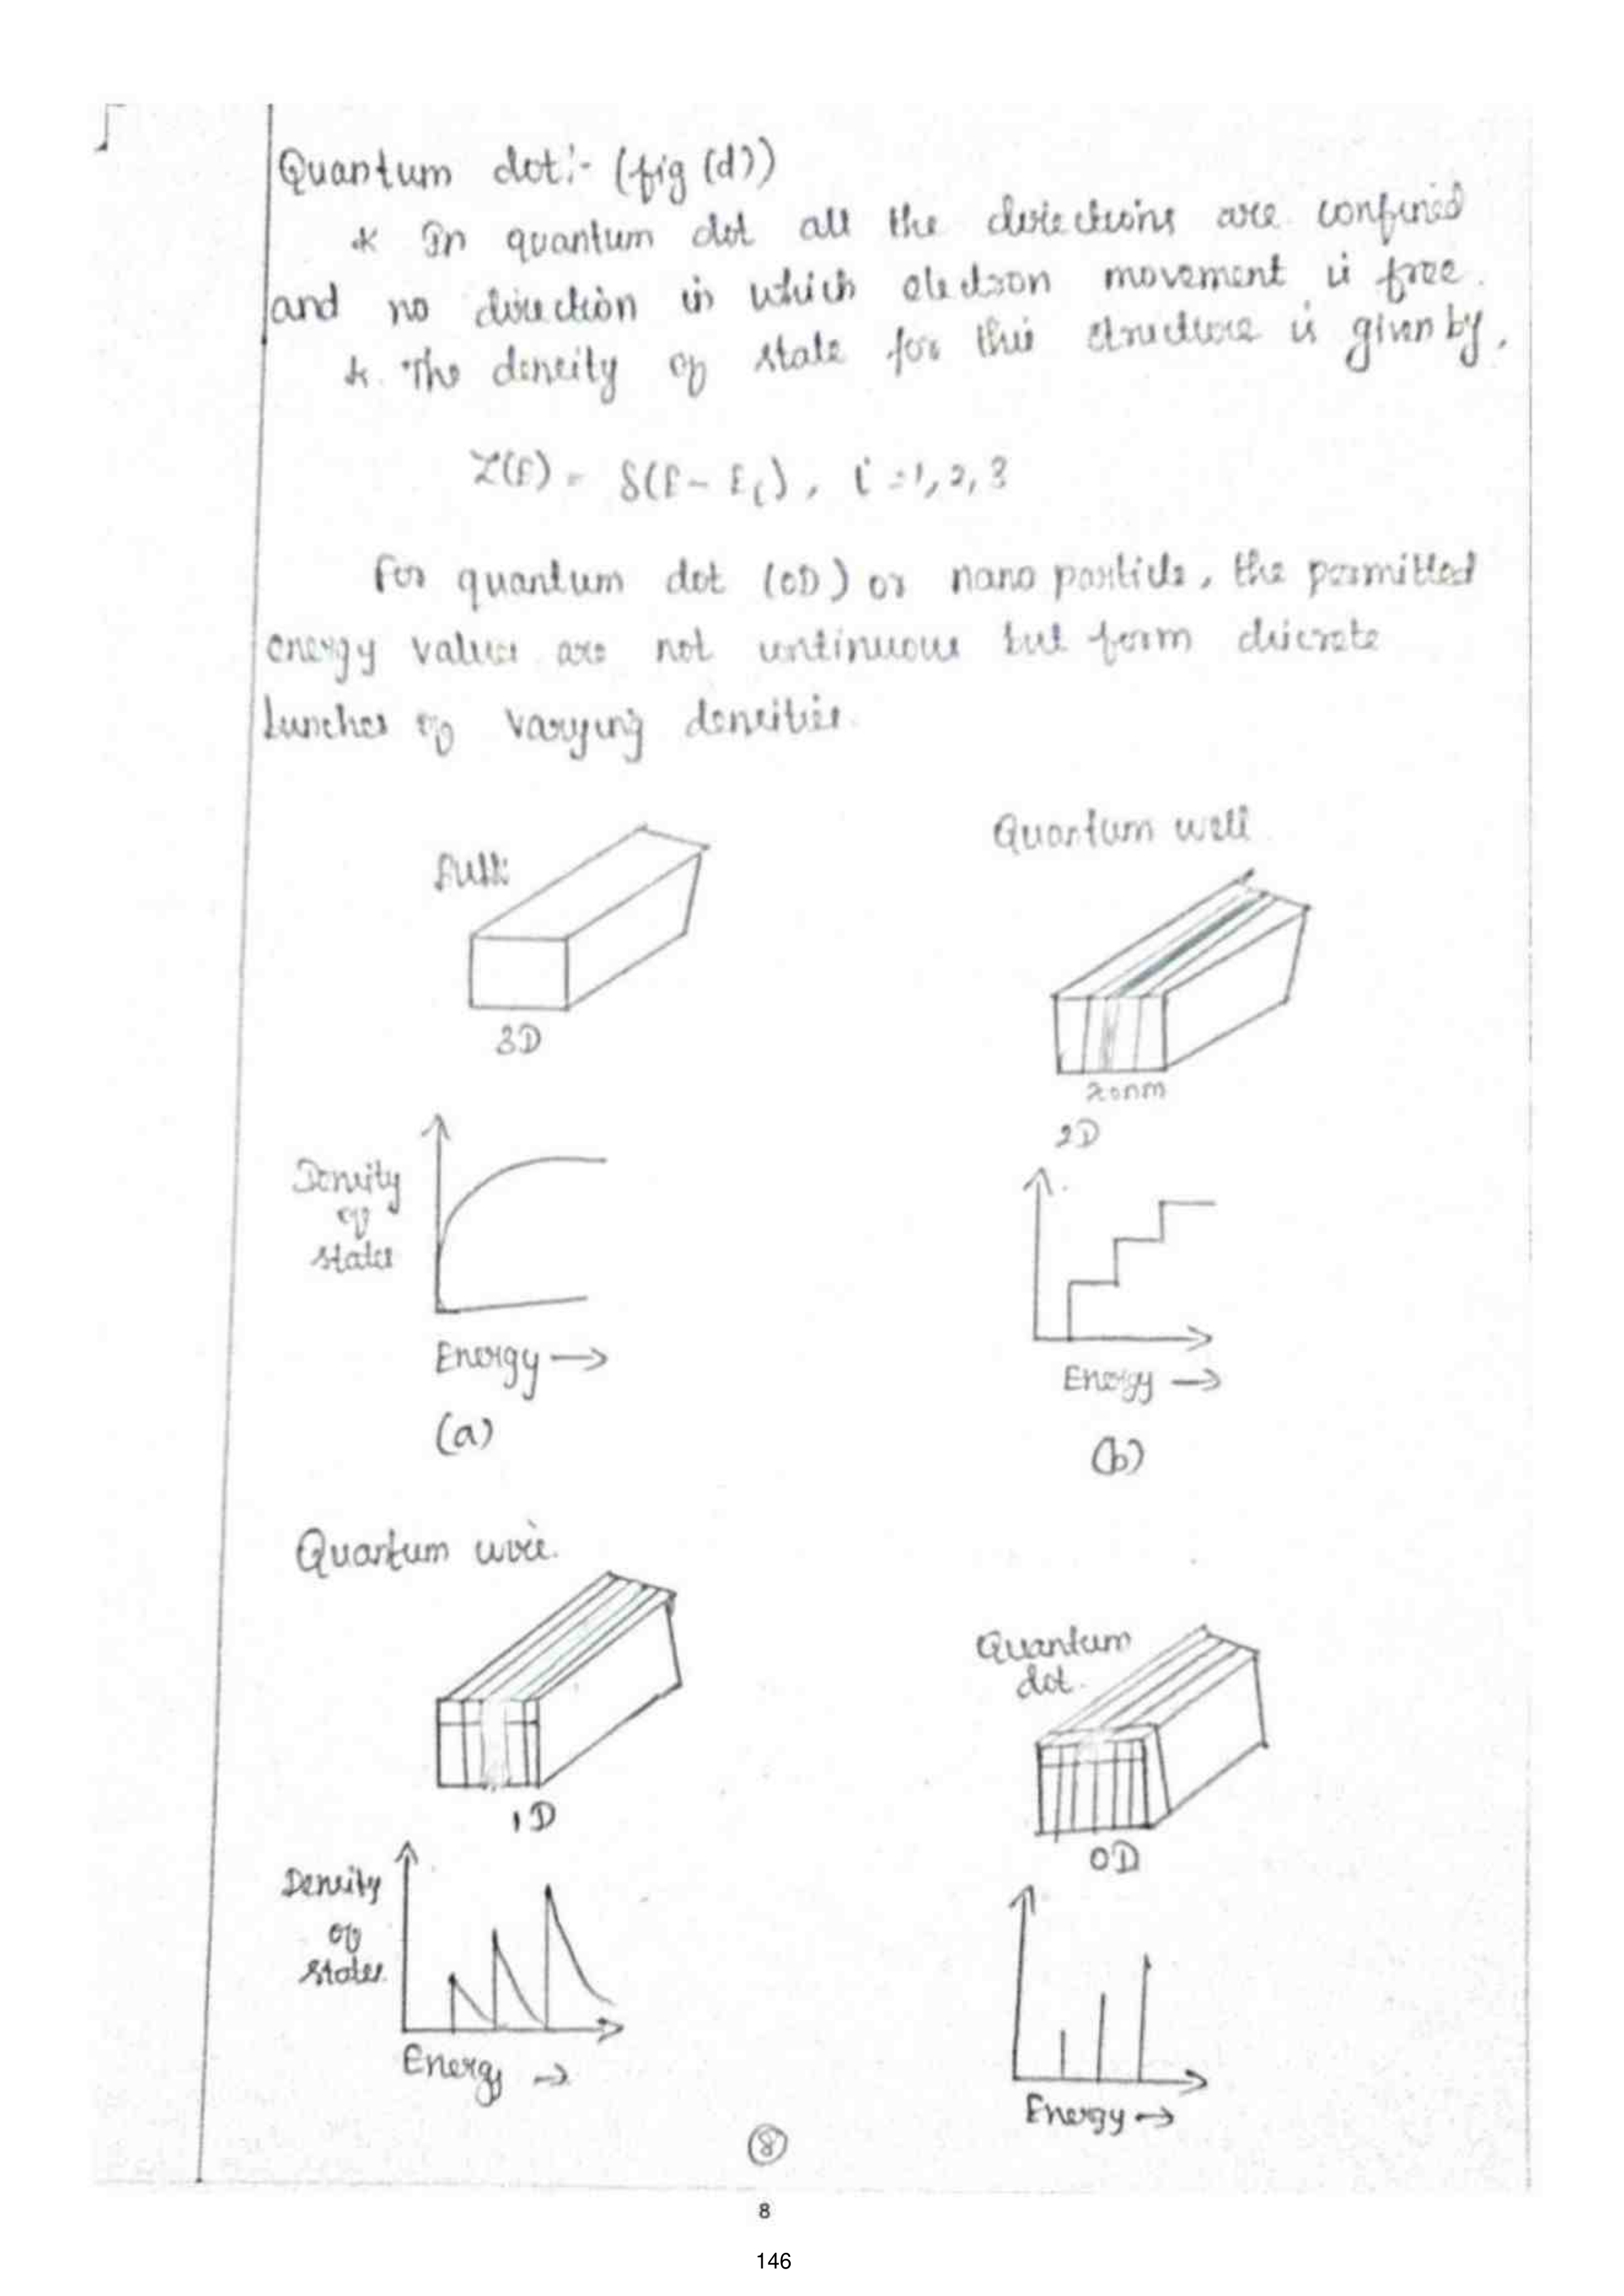 Quantum dot:- (fig (d))
* In quantum dot all the directions are confined
and no direction in which electron movement is free.
* The density of state for this structure is given by,
Z(E) = δ(E - Ei), i = 1, 2, 3
For quantum dot (0D) or nano particle, the permitted
energy values are not continuous but form discrete
bunches of varying densities.
Bulk
Quantum well
3D
20nm
2D
Density
of
states
Energy →
(a)
Energy →
(b)
Quantum wire.
Quantum
dot.
1D
0D
Density
of
states
Energy →
Energy →
8
8
146